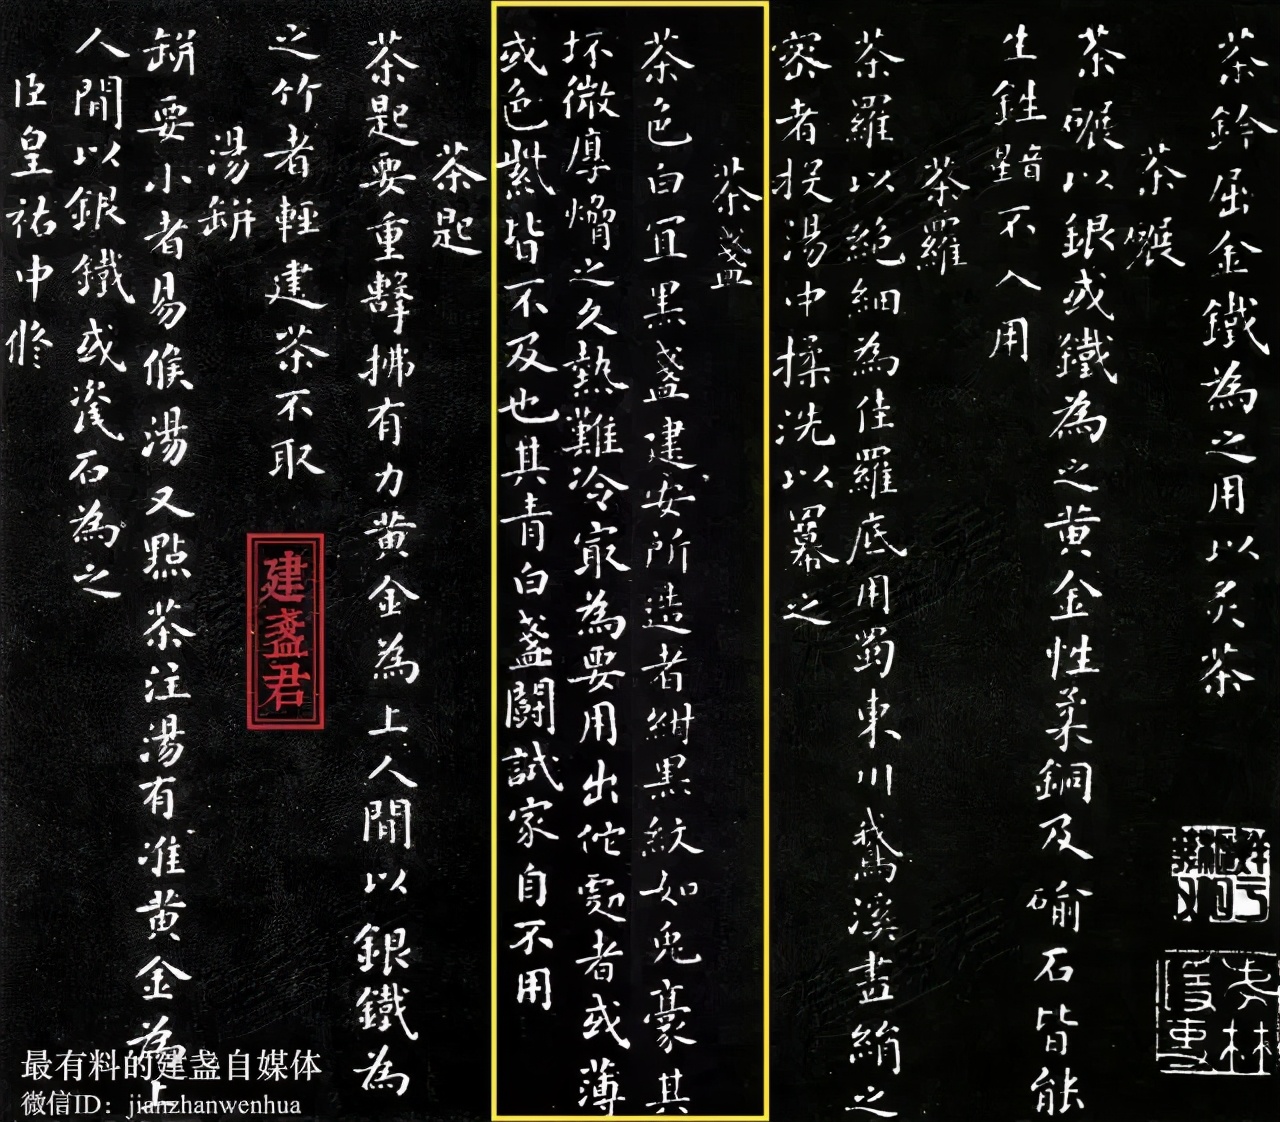 茶鈐屈金鐵為之用以炙茶
茶碾
茶碾以銀或鐵為之黄金性柔銅及石皆能
生鉎音星不入用
茶羅
茶羅以絶細為佳羅底用蜀東川鵝溪畫絹之
密者投湯中揉洗以羃之
茶盞
茶色白宜黒盞建安所造者紺黒紋如兔豪其
坯微厚熁之久熱難冷最為要用出佗處者或薄
或色紫皆不及也其青白盞鬭試家自不用
茶匙
茶匙要重擊拂有力黄金為上人間以銀鐵為
之竹者輕建茶不取
湯缾
缾要小者易候湯又點茶注湯有准黄金為上
人間以銀鐵或瓷石為之
臣皇祐中修
建盞君
最有料的建盏自媒体
微信ID：jianzhanwenhua